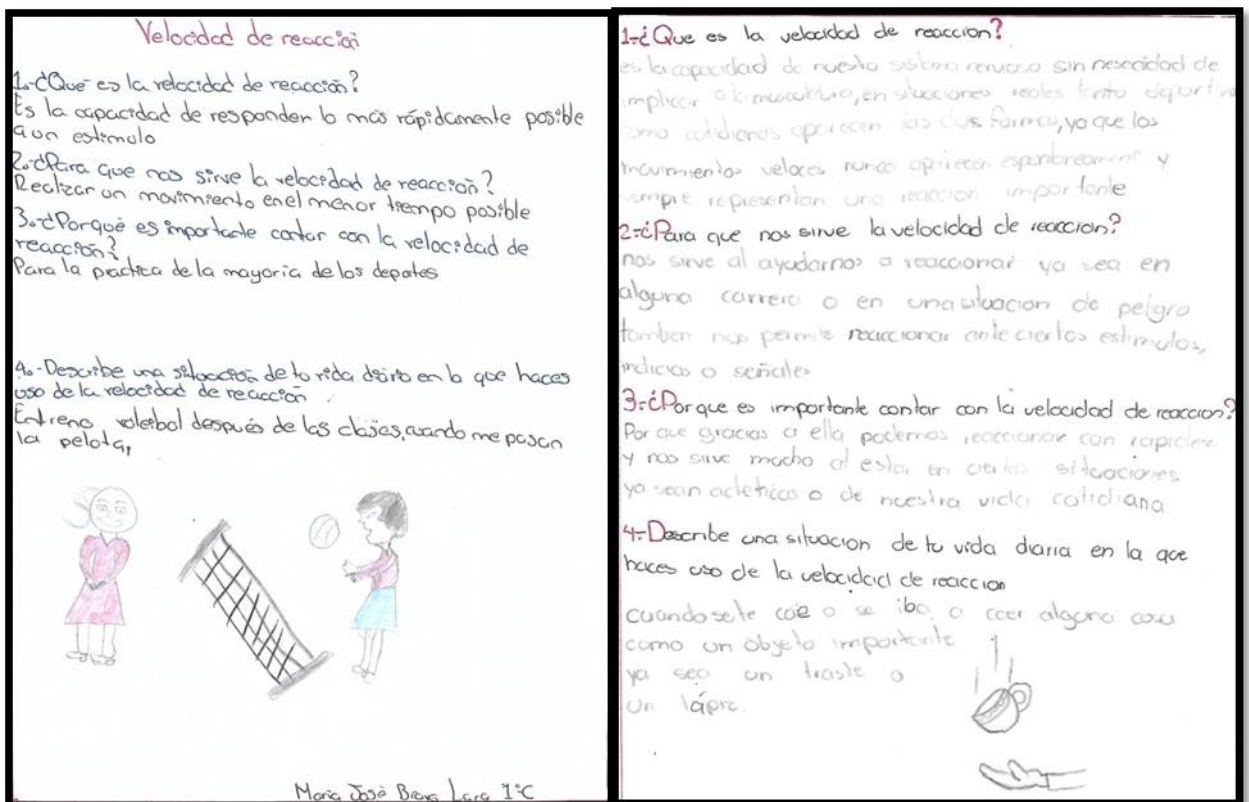 Velocidad de reacción
1.-¿Què es la velocidad de reacción?
Es la capacidad de responder lo más rápidamente posible
a un estimulo
2.-¿Para que nos sirve la velocidad de reacción?
Realizar un movimiento en el menor tiempo posible
3.-¿Porquè es importante contar con la velocidad de
reacción?
Para la practica de la mayoria de los depotes
4.-Describe una situacción de tu vida diaria en la que haces
uso de la velocidad de reacción.
Entreno voleibol después de las clases, cuando me pasan
la pelota,
Maria Josè Lara 1°C
1-¿Que es la velocidad de reaccion?
es la capacidad de nuestro sistema nervioso sin nesecidad de
implicar a la musculatura, en situaciones reales tanto deportiva
como cotidianas aparecen las dos formas, ya que los
movimientos veloces nunca aparecen y
siempre representan una reaccion importante
2-¿Para que nos sirve la velocidad de reaccion?
nos sirve al ayudarnos a reaccionar ya sea en
alguna carrera o en una situacion de peligro
tambien nos permite reaccionar ante ciertos estimulos,
indicios o señales
3-¿Porque es importante contar con la velocidad de reaccion?
Por que gracias a ella podemos reaccionar con rapidez
y nos sirve mucho al estar en ciertas situaciones
ya sean acleticas o de nuestra vida cotidiana
4-Describe una situacion de tu vida diaria en la que
haces uso de la velocidad de reaccion
cuando se te cae o se iba a caer alguna cosa
como un objeto importante
ya sea un traste o
un lápiz.